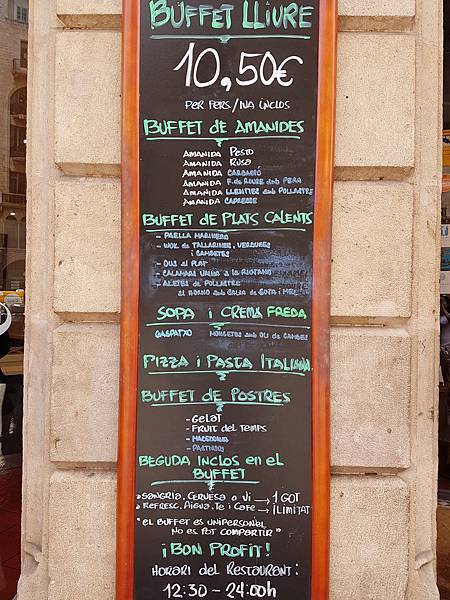 BUFFET LLIURE
10,50€
PER PERS./IVA INCLOS
BUFFET de AMANIDES
AMANIDA PESTO
AMANIDA RUSO
AMANIDA
AMANIDA F. de ROURE amb PERA
AMANIDA LLENTIES amb POLLASTRE
AMANIDA CAPRESSE
BUFFET de PLATS CALENTS
- PAELLA MARINERA
- WOK de TALLARINES, VERDURES
i GAMBETES
- OUS al PLAT
- CALAMAR
- ALETES de POLLASTRE
al FORNO amb SALSA de SOJA i MEL
SOPA i CREMA FREDA
GASPATXO MONGETES amb OLI de GAMBES
PIZZA i PASTA ITALIANA
BUFFET de POSTRES
- GELAT
- FRUIT del TEMPS
- MACEDONIA
- PASTISSOS
BEGUDA INCLOS en el
BUFFET
SANGRIA, CERVESA o VI → 1 GOT
REFRESC, AIGUA, TE i CAFE → ILIMITAT
"EL BUFFET ES UNIPERSONAL
NO ES POT COMPARTIR"
¡BON PROFIT!
HORARI del RESTAURANT:
12:30 - 24:00h